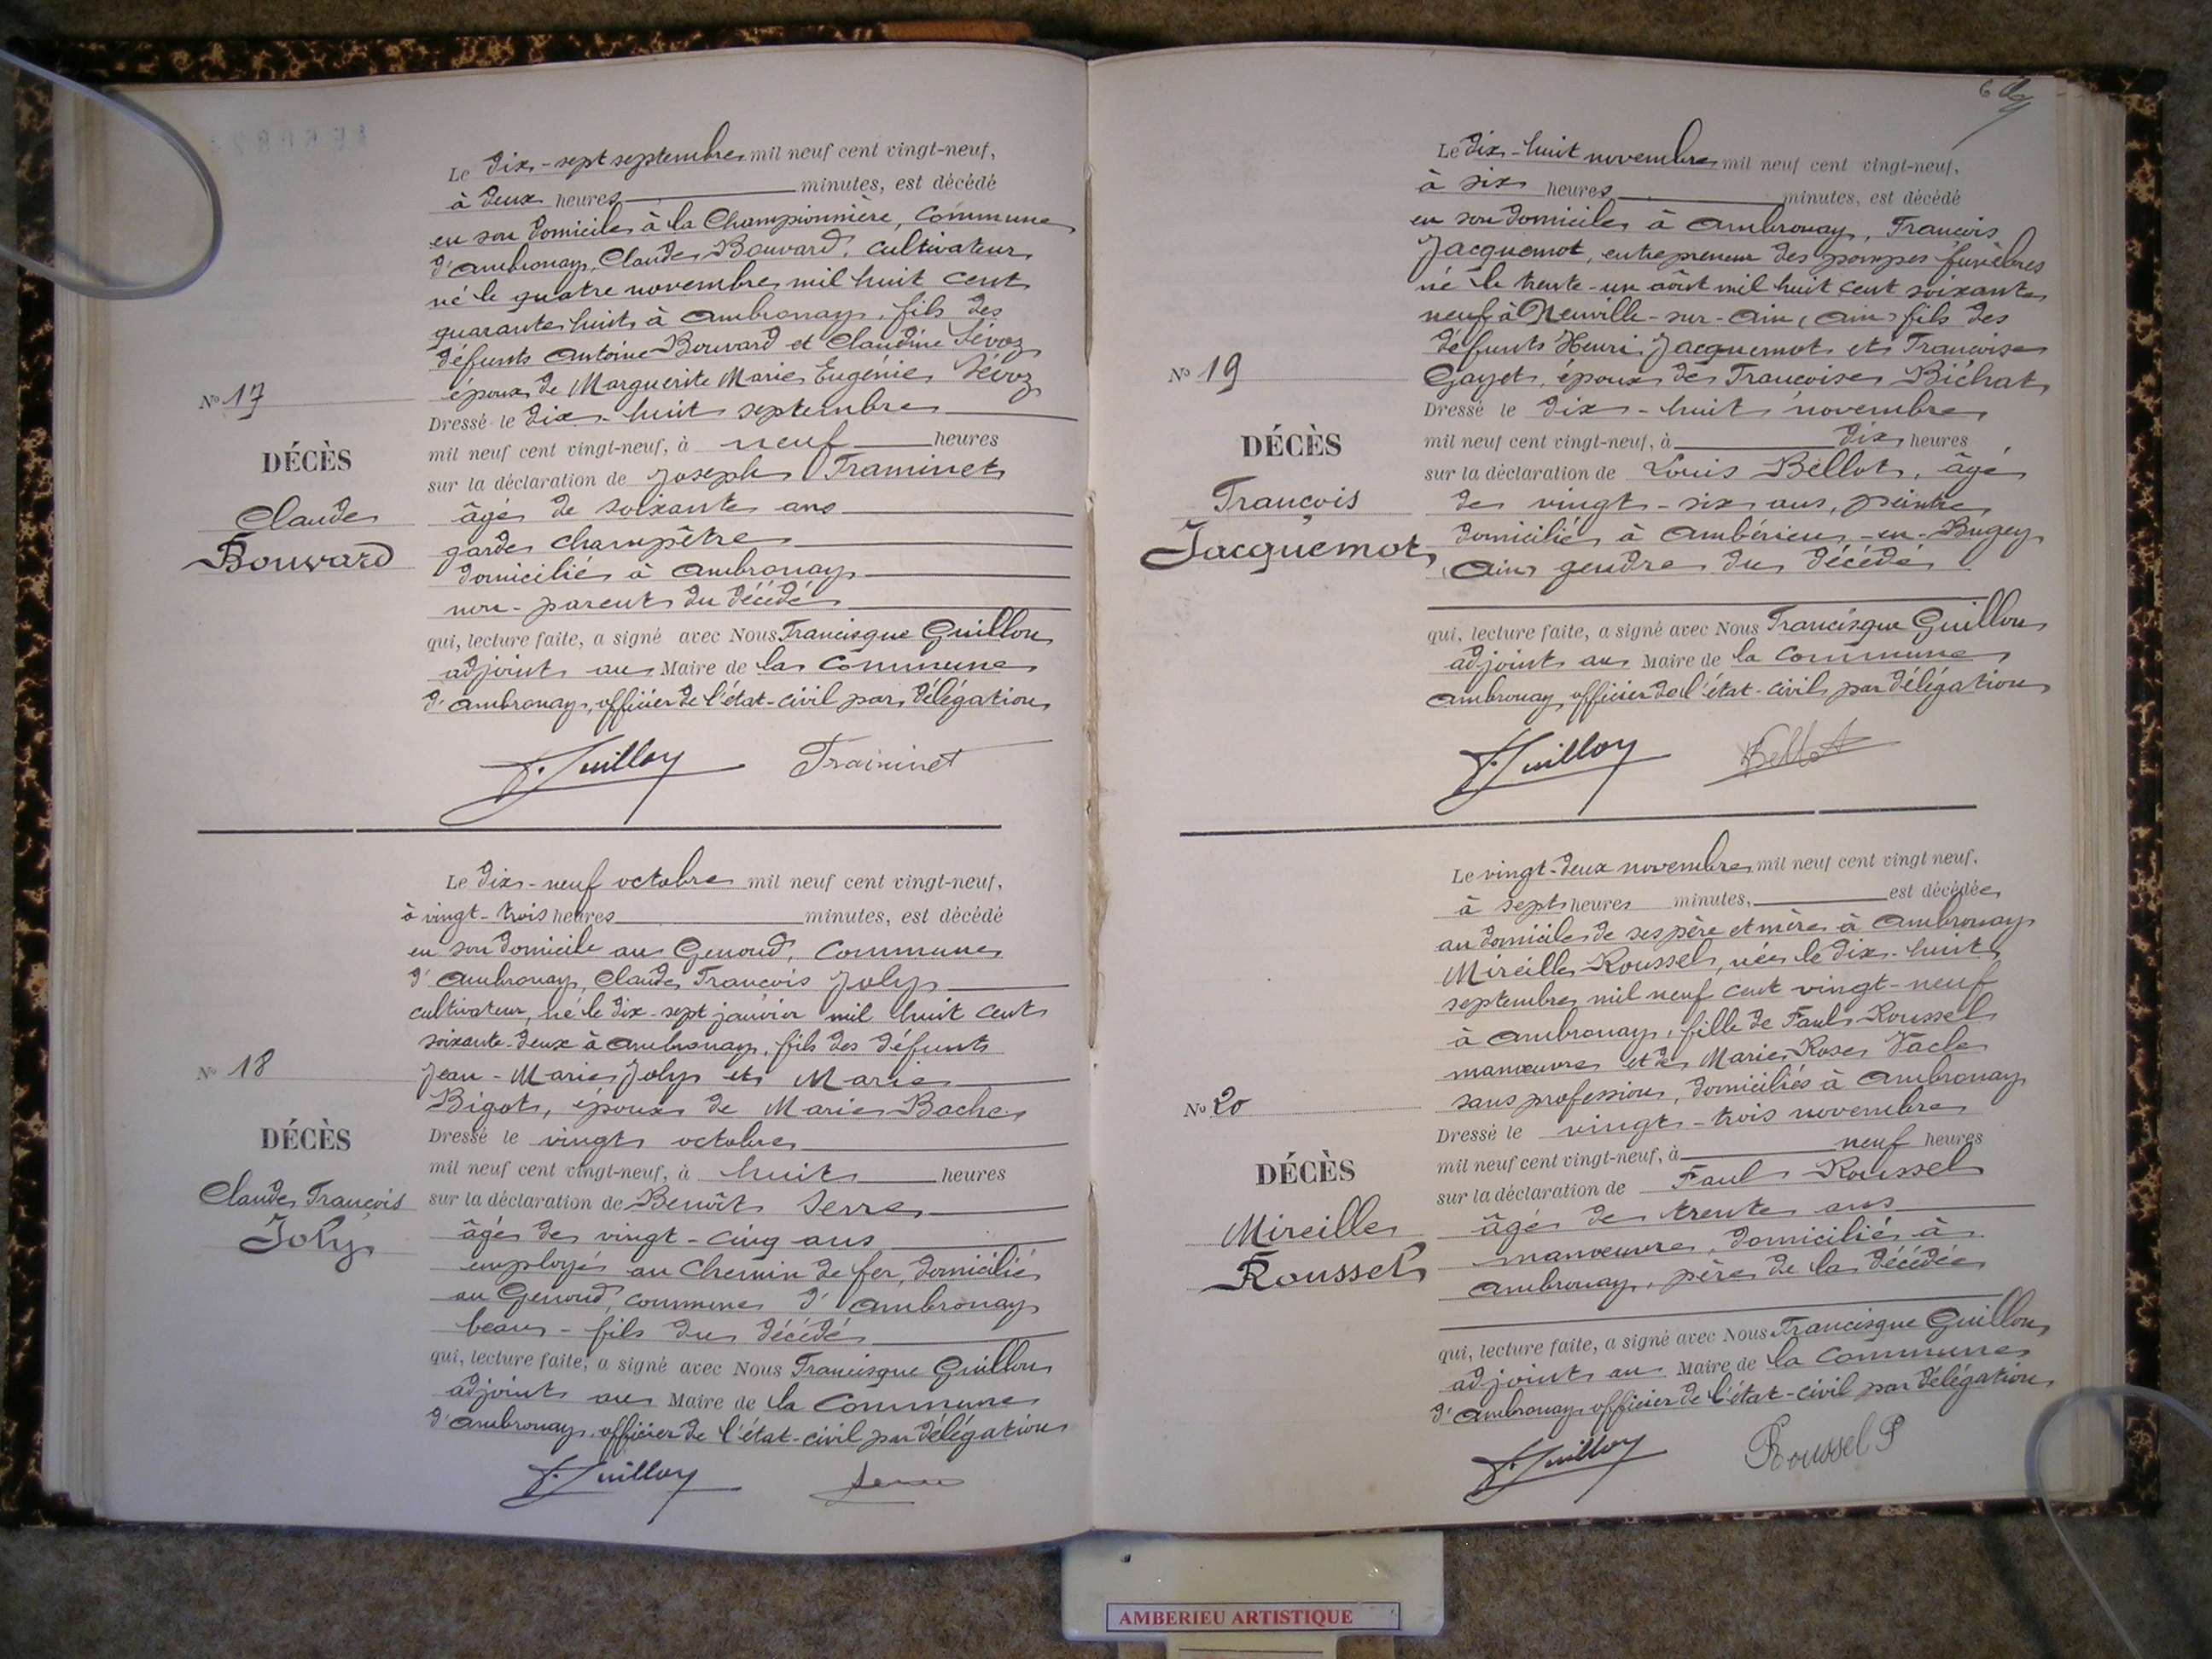 Le dix-sept septembre mil neuf cent vingt-neuf,
à deux heures minutes, est décédé
en son domicile à la Championnière, commune
d'Ambronay, Claude Bouvard, cultivateur
né le quatre novembre mil huit cent
quarante huit à Ambronay, fils des
défunts Antoine Bouvard et Claudine Sévoz
époux de Marguerite Marie Eugénie Sévoz
Nº 17
DÉCÈS
Claude
Bouvard
Dressé le dix-huit septembre
mil neuf cent vingt-neuf, à neuf heures
sur la déclaration de Joseph Traminet
âgé de soixante ans
garde champêtre
domicilié à Ambronay
non-parent du décédé
qui, lecture faite, a signé avec Nous Francisque Guillon
adjoint au Maire de la Commune
d'Ambronay, officier de l'état-civil par délégation
F. Guillon Traminet
Le dix-neuf octobre mil neuf cent vingt-neuf,
à vingt-trois heures minutes, est décédé
en son domicile au Genoud, commune
d'Ambronay, Claude François Joly
cultivateur, né le dix-sept janvier mil huit cent
soixante-deux à Ambronay, fils des défunts
Jean-Marie Joly et Marie
Bigot, époux de Marie Bache
Nº 18
DÉCÈS
Claude François
Joly
Dressé le vingt octobre
mil neuf cent vingt-neuf, à huit heures
sur la déclaration de Benoît Serre
âgé de vingt-cinq ans
employé au Chemin de fer, domicilié
au Genoud, commune d'Ambronay
beau-fils du décédé
qui, lecture faite, a signé avec Nous Francisque Guillon
adjoint au Maire de la Commune
d'Ambronay, officier de l'état-civil par délégation
F. Guillon Serre
Le dix-huit novembre mil neuf cent vingt-neuf,
à six heures minutes, est décédé
en son domicile à Ambronay, François
Jacquemot, entrepreneur des pompes funèbres
né le trente-un août mil huit cent soixante
neuf à Neuville-sur-Ain (Ain) fils des
défunts Henri Jacquemot et Françoise
Gayet, époux de Françoise Bichat
Nº 19
DÉCÈS
François
Jacquemot
Dressé le dix-huit novembre
mil neuf cent vingt-neuf, à dix heures
sur la déclaration de Louis Bellot, âgé
de vingt-six ans, peintre
domicilié à Ambérieu-en-Bugey
(Ain) gendre du décédé
qui, lecture faite, a signé avec Nous Francisque Guillon
adjoint au Maire de la Commune
Ambronay, officier de l'état-civil par délégation
F. Guillon Bellot
Le vingt-deux novembre mil neuf cent vingt neuf,
à sept heures minutes, est décédée
au domicile de ses père et mère à Ambronay
Mireille Roussel, née le dix-huit
septembre mil neuf cent vingt-neuf
à Ambronay, fille de Paul Roussel
manœuvre et de Marie Rose Vacle
sans profession, domiciliés à Ambronay
Nº 20
DÉCÈS
Mireille
Roussel
Dressé le vingt-trois novembre
mil neuf cent vingt-neuf, à neuf heures
sur la déclaration de Paul Roussel
âgé de trente ans
manœuvre, domicilié à
Ambronay, père de la décédée
qui, lecture faite, a signé avec Nous Francisque Guillon
adjoint au Maire de la Commune
d'Ambronay, officier de l'état-civil par délégation
F. Guillon Roussel P
AMBERIEU ARTISTIQUE